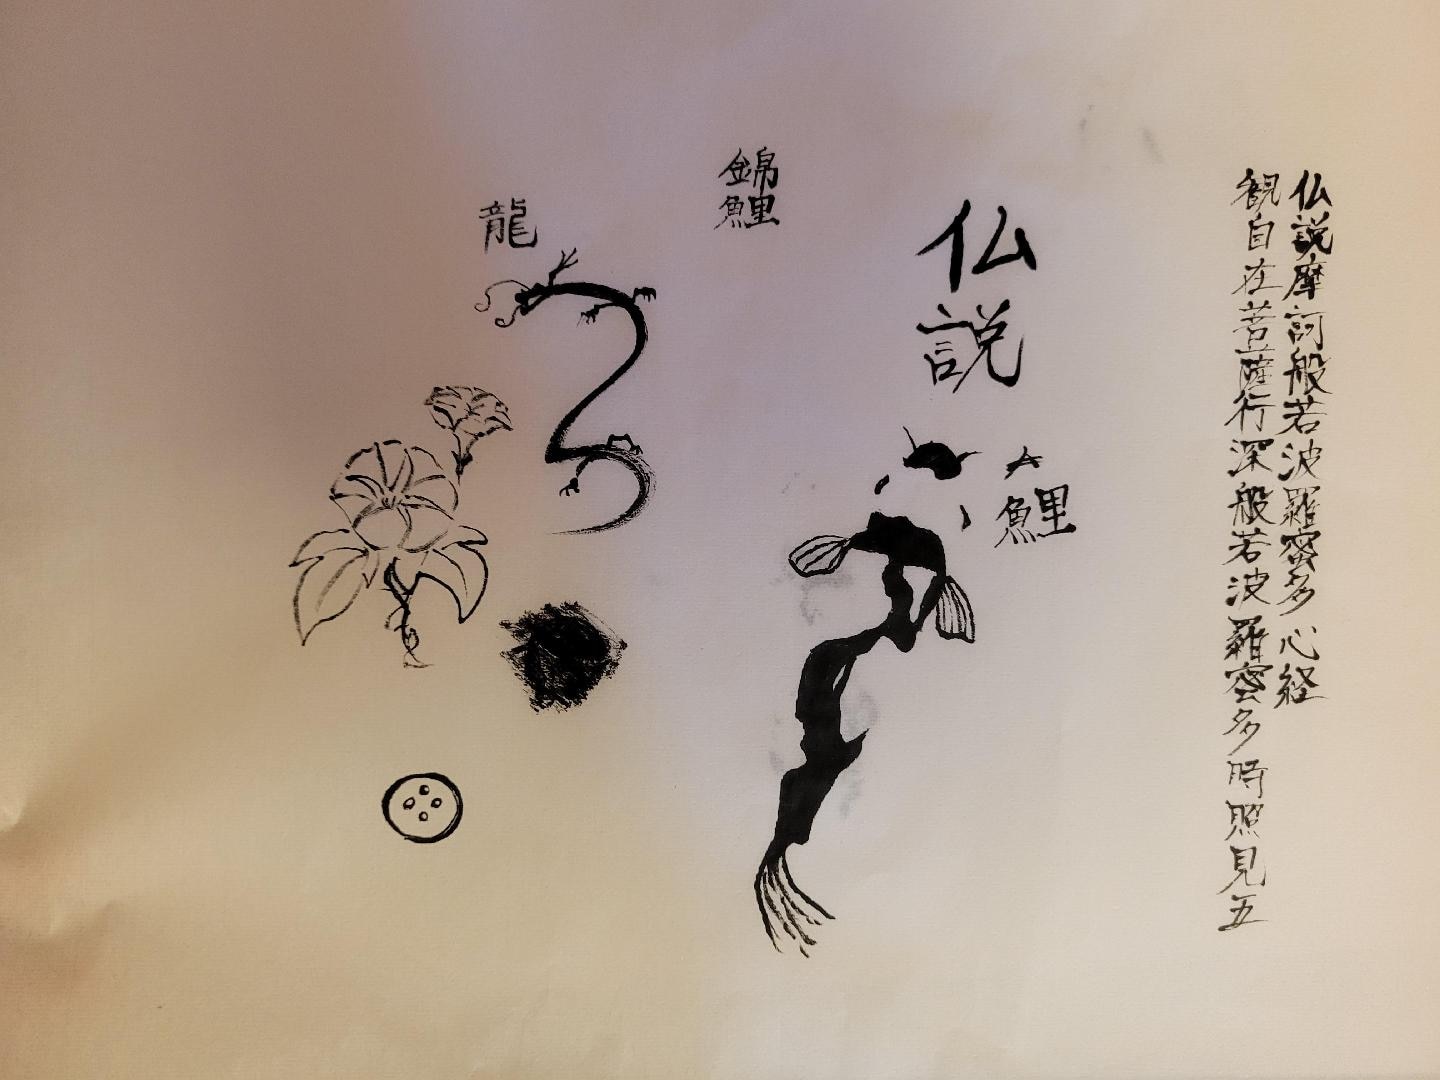 仏説摩訶般若波羅蜜多心経
観自在菩薩行深般若波羅蜜多時照見五
仏説
鯉
錦鯉
龍